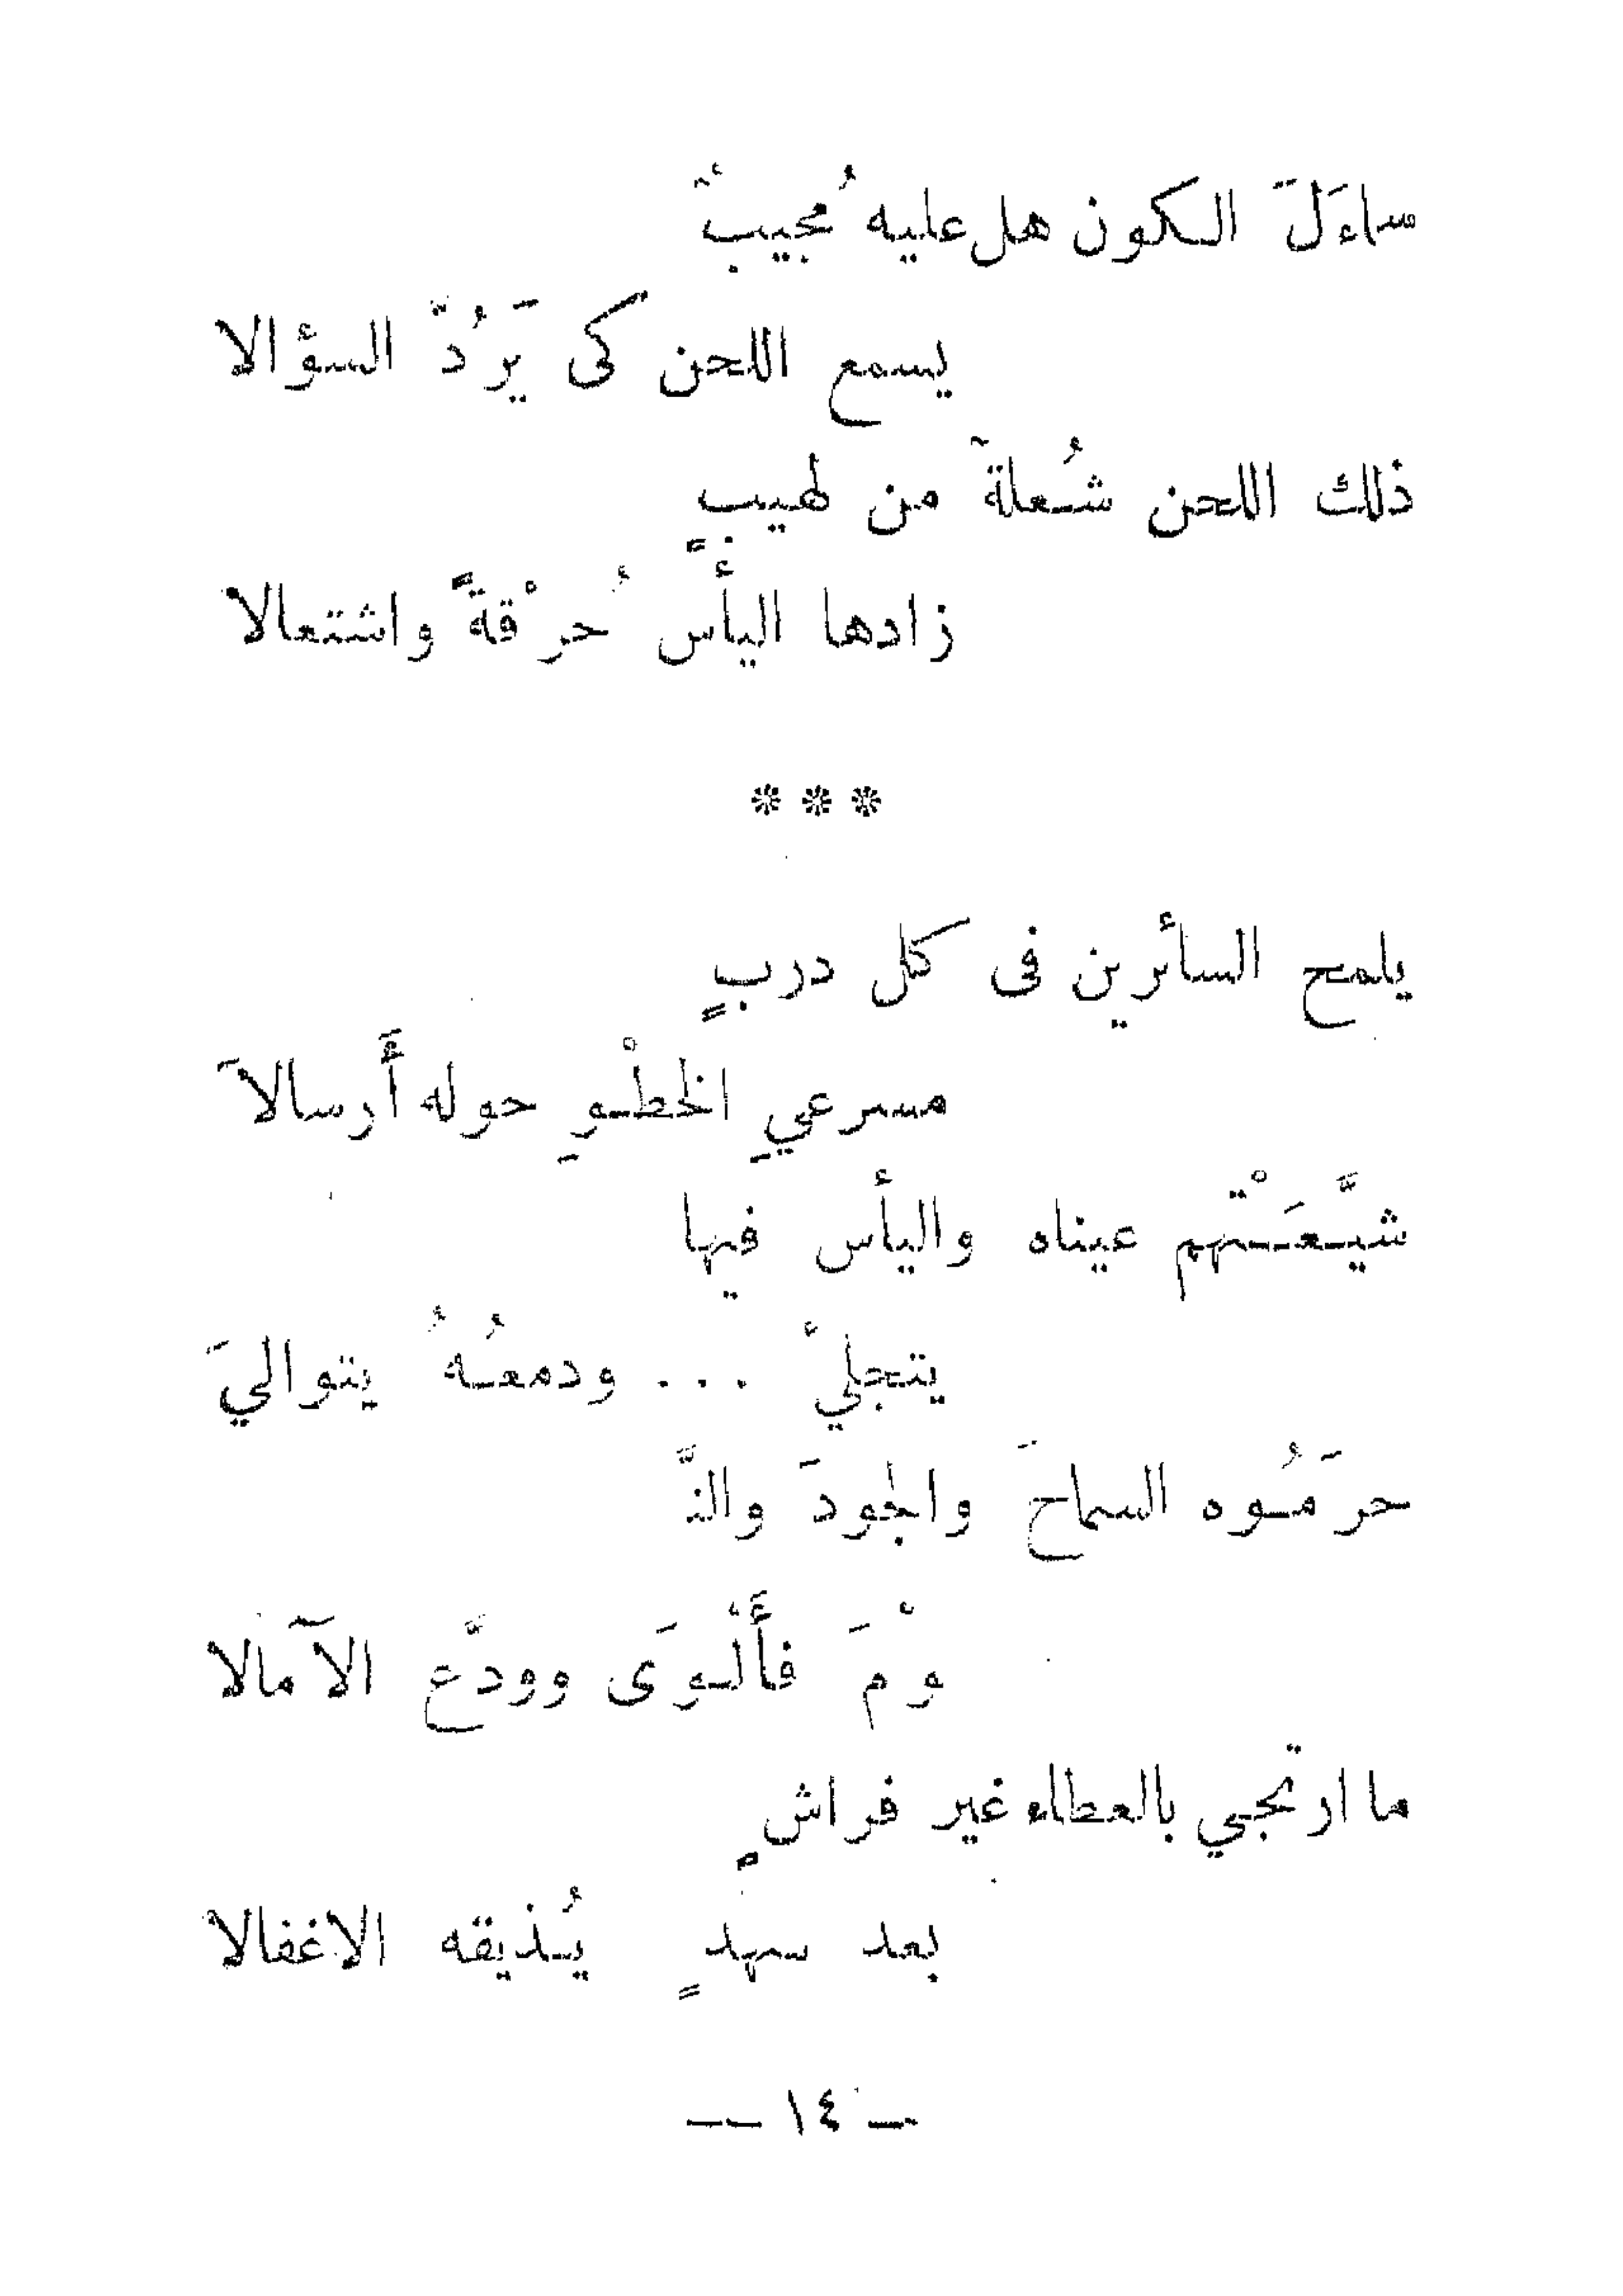 ساءَلَ الكون هل عليه مُجيبٌ
يسمع اللحن كى يَرُدَّ السؤالا
ذلك اللحن شُعلةٌ من لهيبٍ
زادها اليأس حُرْقةً واشتعالا
***
يلمح السأرين فى كل دربٍ
مسرعيِ الخطْوِ حوله أَرسالاَ
شيَّعَتْهم عيناه واليأس فيها
يتجليْ ... ودمعُهُ يتواليَ
حرَمُوه السماحَ والجودَ والنَّ
وْمَ فأَلْوَى وودَّع الآمالا
ما ارتجي بالعطاء غير فراشٍ
بعد سهدٍ يُذيقه الاغفالا
— ١٤ —